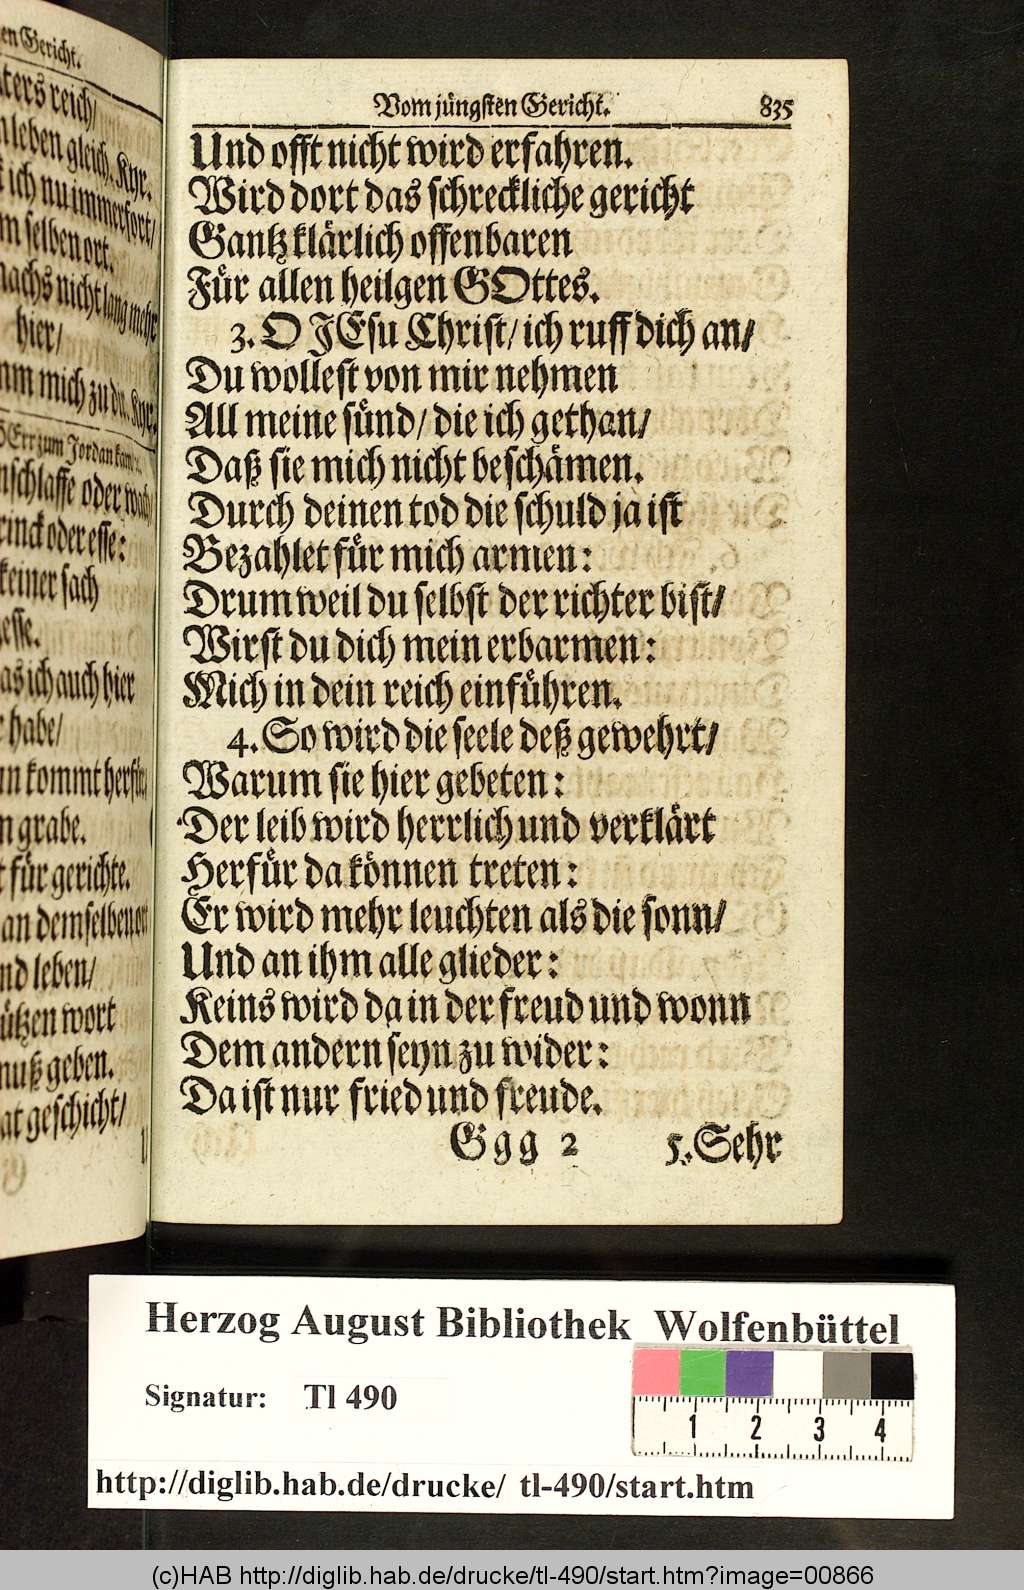 en Gericht.
ters reich/
leben gleich. Kyr.
ich nu immerfort/
m selben ort.
nachs nicht lang mehr
hier/
mm mich zu dir. Kyr.
HErr zum Jordan kam.
schlaffe oder wach/
rinck oder esse:
keiner sach
esse.
as ich auch hier
habe/
un kommt herfür
n grabe.
t für gerichte.
an demselben ort
nd leben/
ützen wort
muß geben.
at geschicht/
U
Vom jüngsten Gericht. 835
Und offt nicht wird erfahren.
Wird dort das schreckliche gericht
Gantz klärlich offenbaren
Für allen heilgen GOttes.
3. O JEsu Christ/ ich ruff dich an/
Du wollest von mir nehmen
All meine sünd/ die ich gethan/
Daß sie mich nicht beschämen.
Durch deinen tod die schuld ja ist
Bezahlet für mich armen:
Drum weil du selbst der richter bist/
Wirst du dich mein erbarmen:
Mich in dein reich einführen.
4. So wird die seele deß gewehrt/
Warum sie hier gebeten:
Der leib wird herrlich und verklärt
Herfür da können treten:
Er wird mehr leuchten als die sonn/
Und an ihm alle glieder:
Keins wird da in der freud und wonn
Dem andern seyn zu wider:
Da ist nur fried und freude.
Ggg 2 5. Sehr
Herzog August Bibliothek Wolfenbüttel
Signatur: Tl 490
1 2 3 4
http://diglib.hab.de/drucke/ tl-490/start.htm
(c)HAB http://diglib.hab.de/drucke/tl-490/start.htm?image=00866